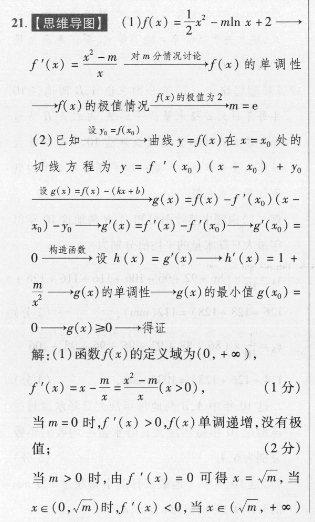 21.【思维导图】 (1)f(x)=1/2x²-mln x+2⟶
f′(x)=(x²-m)/x ⟶(对m分情况讨论) f(x)的单调性
⟶f(x)的极值情况 ⟶(f(x)的极值为2) m=e
(2)已知 ⟶(设y₀=f(x₀)) 曲线y=f(x)在x=x₀处的
切线方程为 y = f′(x₀)(x - x₀) + y₀
⟶(设g(x)=f(x)-(kx+b)) g(x)=f(x)-f′(x₀)(x-
x₀)-y₀⟶g′(x)=f′(x)-f′(x₀)⟶g′(x₀)=
0 ⟶(构造函数) 设 h(x)=g′(x)⟶h′(x)=1+
m/x²⟶g(x)的单调性⟶g(x)的最小值g(x₀)=
0⟶g(x)≥0⟶得证
解:(1)函数f(x)的定义域为(0,+∞),
f′(x)=x-m/x=(x²-m)/x(x>0), (1分)
当m=0时,f′(x)>0,f(x)单调递增,没有极
值; (2分)
当m>0时,由f′(x)=0可得x=√m,当
x∈(0,√m)时,f′(x)<0,当x∈(√m,+∞)